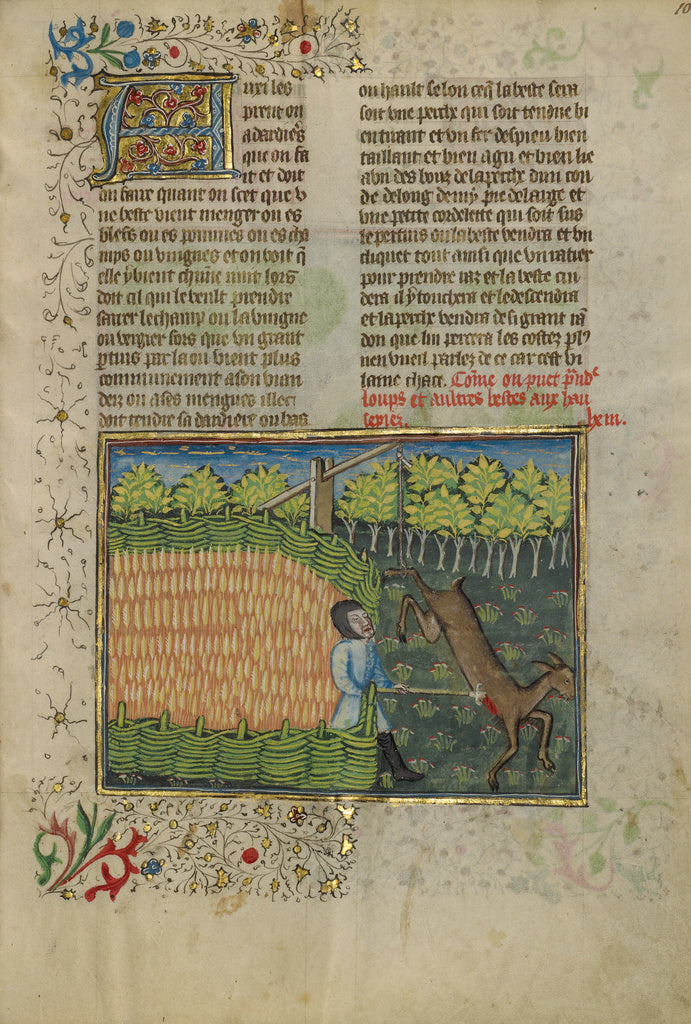 Auxi les
prent on
a dardieres
que on fa
it et doit
on faire quant on scet que v
ne beste vient menger ou es
blefs ou es pommes ou es cha
mps ou vingnes et on voit q̄
elle y vient chūne nuit lors
doit cil qui le veult prendre
farrer le champ ou la vingne
ou vergier fors que vn grant
ꝑtuis par la ou vient plus
communement a son vian
der ou a ses mengues illec
doit tendre sa dardiere ou bas
ou hault selon ceq̄ la beste sera
soit vne perche qui soit tendue bi
en tirant et vn fer despieu bien
taillant et bien agu et bien lie
a vn des bouz de la perche dun cou
de de long demy pie de large et
vne petite cordelette qui soit sus
le pertuis ou la beste vendra et vn
cliquet tout ainsi que vn ratier
pour prendre raz et la beste cui
dera il y touchera et le descendra
et la perche vendra de si grant rā
don que lui percera les costez plꝰ
nen vueil parlez de ce car cest vi
laine chace. Cōme on puet p̄ndͤ
loups et aultres bestes aux hau
sepiez.